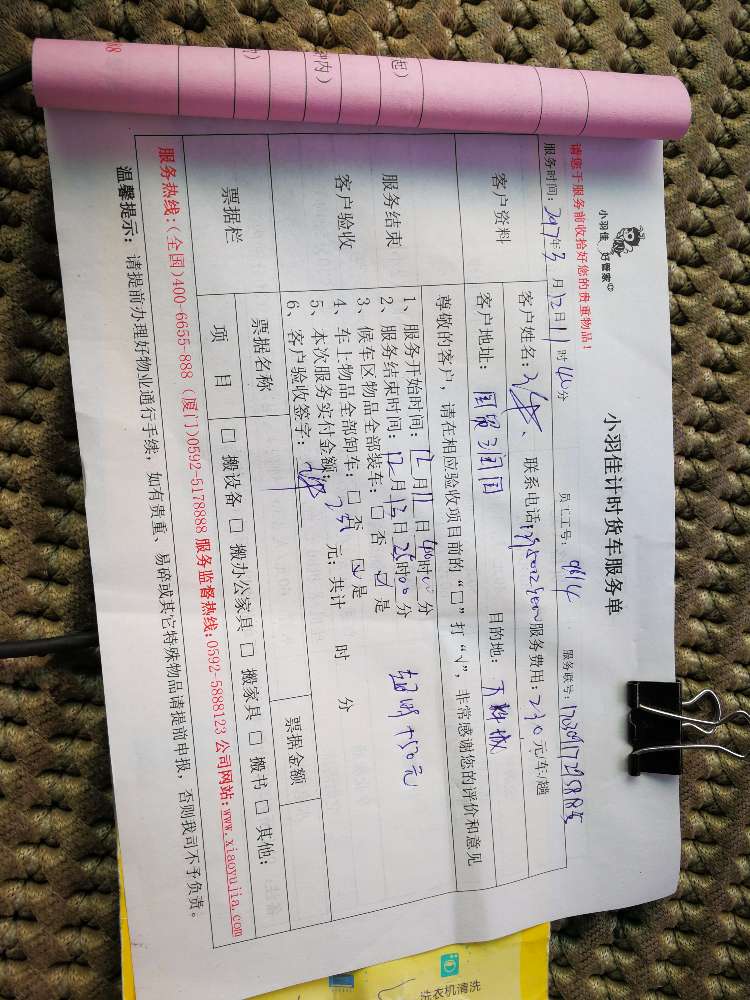 小羽佳
好管家
小羽佳计时货车服务单
请您于服务前收拾好您的贵重物品!
员工工号: 9614 服务账号:
服务时间: 2017年3月12日11时40分
客户资料
客户姓名: 联系电话: 服务费用: 230元/车/趟
客户地址: 国贸 目的地:
尊敬的客户, 请在相应验收项目前的“□”打“√”, 非常感谢您的评价和意见
服务结束
客户验收
1、服务开始时间: 12月11日 时 分
2、服务结束时间: 12月13日25时00分
3、候车区物品全部装车: □ 否 ☑ 是
4、车上物品全部卸车: □ 否 ☑ 是
5、本次服务实付金额: 元; 共计 时 分
6、客户验收签字:
超时+50元
票据栏
票据名称
票据金额
项 目
□ 搬设备 □ 搬办公家具 □ 搬家具 □ 搬书 □ 其他:
服务热线:(全国)400-6655-888 (厦门)0592-5178888 服务监督热线:0592-5888123 公司网站:www.xiaoyujia.com
温馨提示: 请提前办理好物业通行手续, 如有贵重、易碎或其它特殊物品请提前申报, 否则我司不予负责。
洗衣机清洗